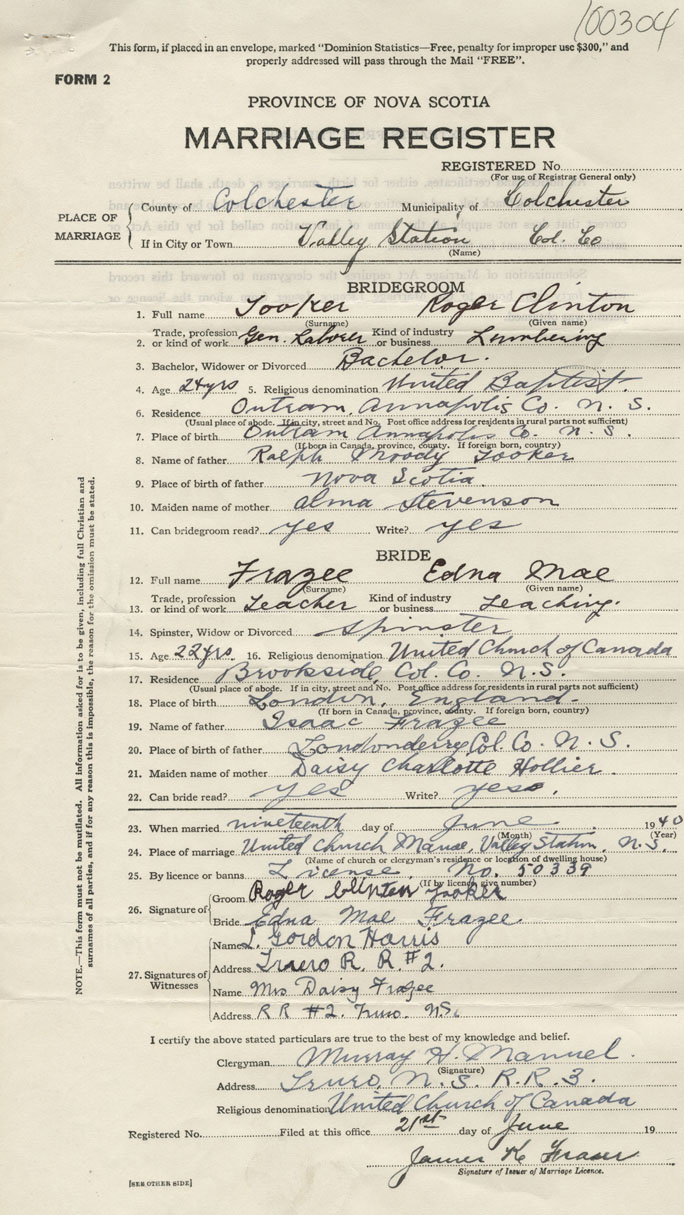 100304
This form, if placed in an envelope, marked "Dominion Statistics—Free, penalty for improper use $300," and
properly addressed will pass through the Mail "FREE".
FORM 2
PROVINCE OF NOVA SCOTIA
MARRIAGE REGISTER
REGISTERED No.
(For use of Registrar General only)
PLACE OF MARRIAGE
County of Colchester Municipality of Colchester
If in City or Town Valley Station Col. Co
(Name)
BRIDEGROOM
1. Full name Tooker Roger Clinton
(Surname) (Given name)
2. Trade, profession or kind of work Gen. Laborer Kind of industry or business Lumbering
3. Bachelor, Widower or Divorced Bachelor.
4. Age 24yrs 5. Religious denomination United Baptist
6. Residence Outram, Annapolis Co. N. S.
(Usual place of abode. If in city, street and No. Post office address for residents in rural parts not sufficient)
7. Place of birth Outram Annapolis Co. N. S.
(If born in Canada, province, county. If foreign born, country)
8. Name of father Ralph Moody Tooker
9. Place of birth of father Nova Scotia.
10. Maiden name of mother Alma Stevenson
11. Can bridegroom read? yes Write? yes
BRIDE
12. Full name Frazee Edna Mae
(Surname) (Given name)
13. Trade, profession or kind of work Teacher Kind of industry or business Teaching.
14. Spinster, Widow or Divorced Spinster
15. Age 22yrs. 16. Religious denomination United Church of Canada
17. Residence Brookside, Col. Co. N. S.
(Usual place of abode. If in city, street and No. Post office address for residents in rural parts not sufficient)
18. Place of birth London, England.
(If born in Canada, province, county. If foreign born, country)
19. Name of father Isaac Frazee
20. Place of birth of father Londonderry, Col. Co. N. S.
21. Maiden name of mother Daisy Charlotte Hollier.
22. Can bride read? yes Write? yes.
23. When married nineteenth day of June 1940
(Month) (Year)
24. Place of marriage United Church Manse, Valley Station, N. S.
(Name of church or clergyman's residence or location of dwelling house)
25. By licence or banns License. No. 50339
(If by licence give number)
26. Signature of
Groom Roger Clinton Tooker
Bride Edna Mae Frazee.
27. Signatures of Witnesses
Name L. Gordon Harris
Address Truro R. R. #2.
Name Mrs Daisy Frazee
Address R R #2. Truro. N.S.
I certify the above stated particulars are true to the best of my knowledge and belief.
Clergyman Murray H. Manuel.
(Signature)
Address Truro, N. S. R. R. 3.
Religious denomination United Church of Canada
Registered No. Filed at this office 21st day of June 19
James K Fraser
Signature of Issuer of Marriage Licence.
[SEE OTHER SIDE]
NOTE.—This form must not be mutilated. All information asked for is to be given, including full Christian and
surnames of all parties, and if for any reason this is impossible, the reason for the omission must be stated.